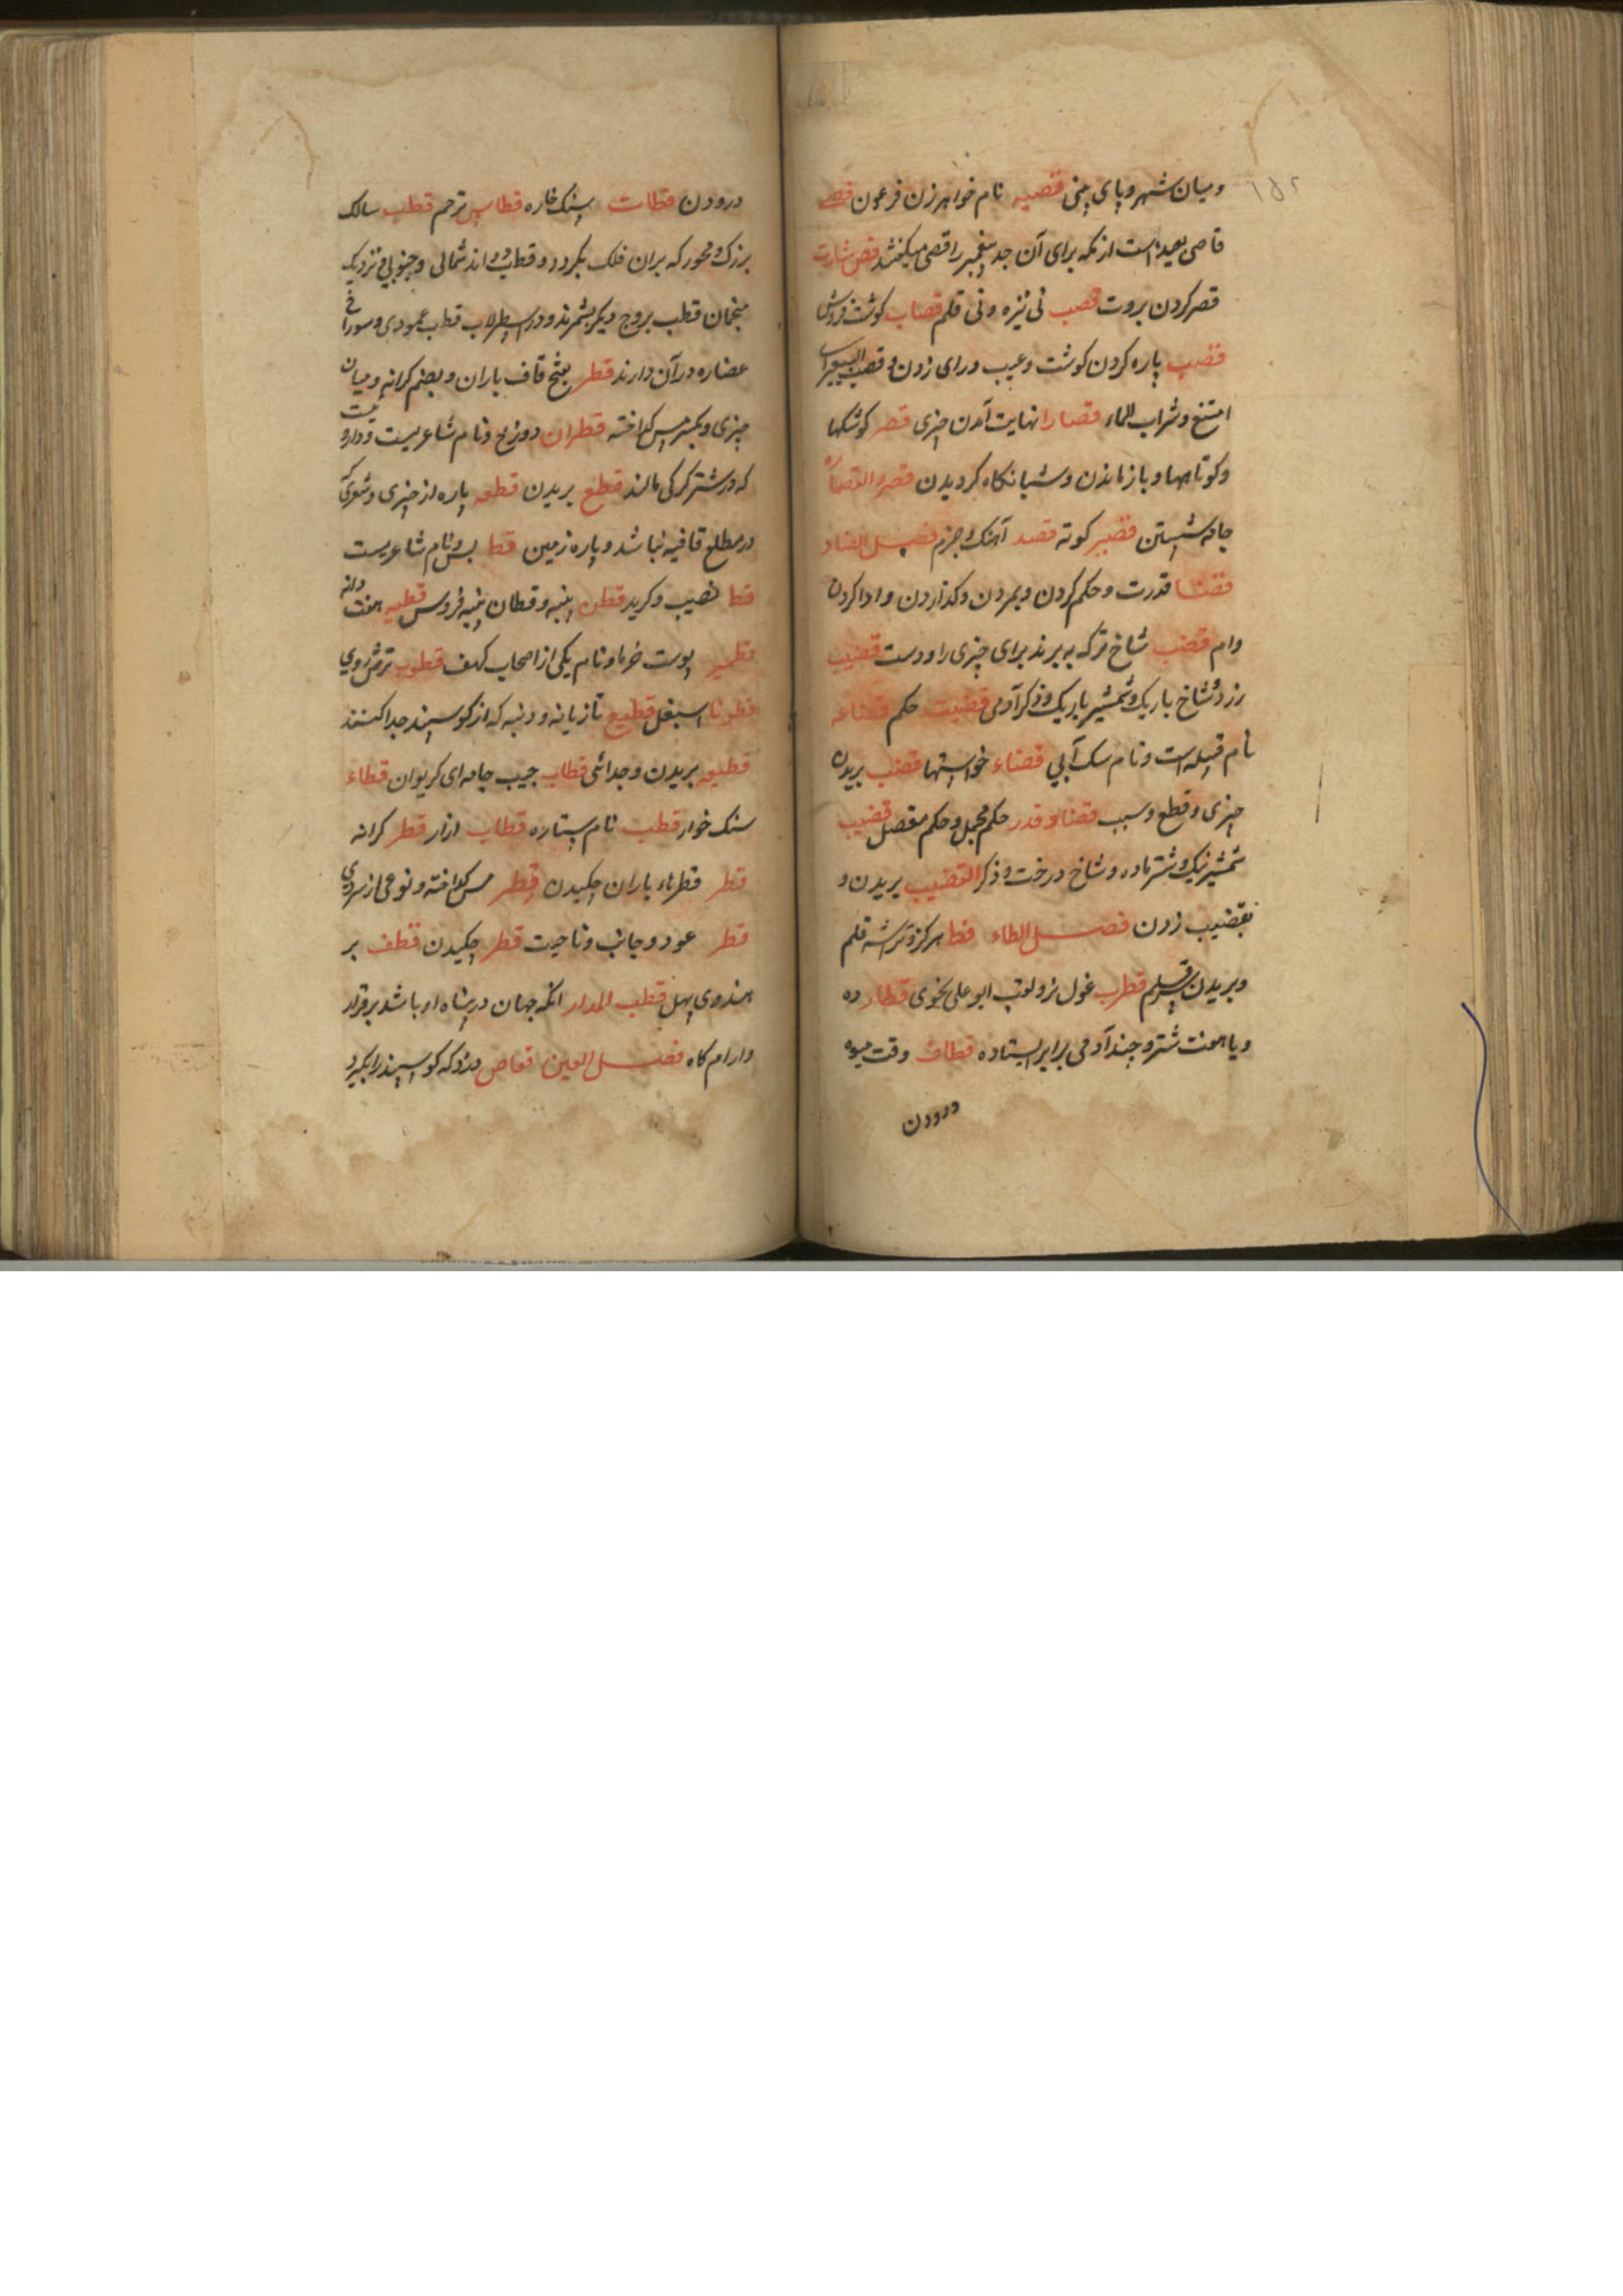 ومیان شهر و پای بینی قصیه نام خواهر زن فرعون قصی
قاصی بعید است از مکه برای آن جد پیغمبر را قصی میکفتند قص شارت
قصر کردن بروت قصب نی نیزه و نی قلم قصاب کوشت فروش
قصب پاره کردن کوشت و عیب ورای زدن و قصب البعیر
امتنع و شراب الماء قصارا نهایت آمدن چیزی قصر کوشکها
وکوتاهیها و باز ماندن و شبانکاه کردیدن قصر و القصار
جامه شستن قصیر کوته قصد آهنک و جزم فصل الضاد
قضا قدرت و حکم کردن و بمردن و کذاردن و ادا کردن
وام قضب شاخ ترکه به برند برای چیزی را و دست قضیب
زرد و شاخ باریک و شمشیر باریک و ذکر آدمی قضیت حکم قضاعه
نام قبیله است و نام سک آبی قضاء خواستها قضب بریدن
چیزی و قطع و سبب قضا و قدر حکم مجمل و حکم مفصل قضیب
شمشیر نیک و شتر ماده و شاخ درخت و ذکر القضیب بریدن و
بقضیب زدن فصل الطاء قط هرکز و تراشه قلم
و بریدن سر قلم قطرب غول نر و لقب ابو علی نحوی قطار ده
و یا هفت شتر و چند آدمی برابر ایستاده قطاف وقت میوه
درودن
درودن قطات سنک خاره قطاس ترحم قطب سالک
بزرک و محور که بران فلک بکردد و قطب دو اند شمالی و جنوبی و نزدیک
منجمان قطب بروج دیکر بشمرند و در اسطرلاب قطب عمودی و سوراخ
عضاره در آن دارند قطر بفتح قاف باران و بضم کرانه و میان
چیزی و بکسر مس کداخته قطران دوزخ و نام شاعریست و داروئیست
که در شتر کرکی مالند قطع بریدن قطعه پاره از چیزی و شعری که
در مطلع قافیه نباشد و پاره زمین قط بس و نام شاعریست
قط نصیب و کربه قطن پنبه و قطان پنبه فروس قطیه هفت دانه
قطمیر پوست خرما و نام یکی از اصحاب کهف قطوب ترش روی
قطونا اسبغل قطیع تازیانه و دنبه که از کوسپند جدا کنند
قطیعه بریدن و جدائی قطاب جیب جامه ای کریوان قطاء
سنک خوار قطب نام ستاره قطاب ازار قطر کرانه
قطر قطرهاء باران چکیدن قطر مس کداخته و نوعی از سردی
قطر عود و جانب و ناحیت قطر چکیدن قطف بر
هندوی بهل قطب المدار انکه جهان در پناه او باشد برقرار
و ارام کاه فصل العین قعاص دزد که کوسپند را بکیرد